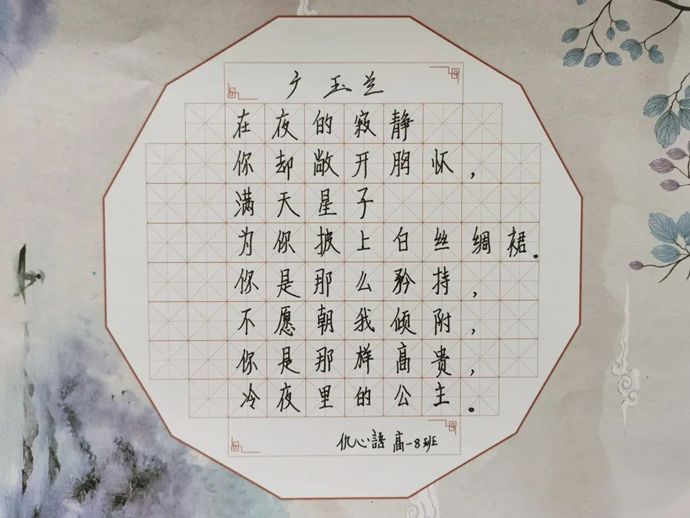 广玉兰
在夜的寂静
你却敞开胸怀，
满天星子
为你披上白丝绸裙。
你是那么矜持，
不愿朝我倾附，
你是那样高贵，
冷夜里的公主。
仇心語 高一8班